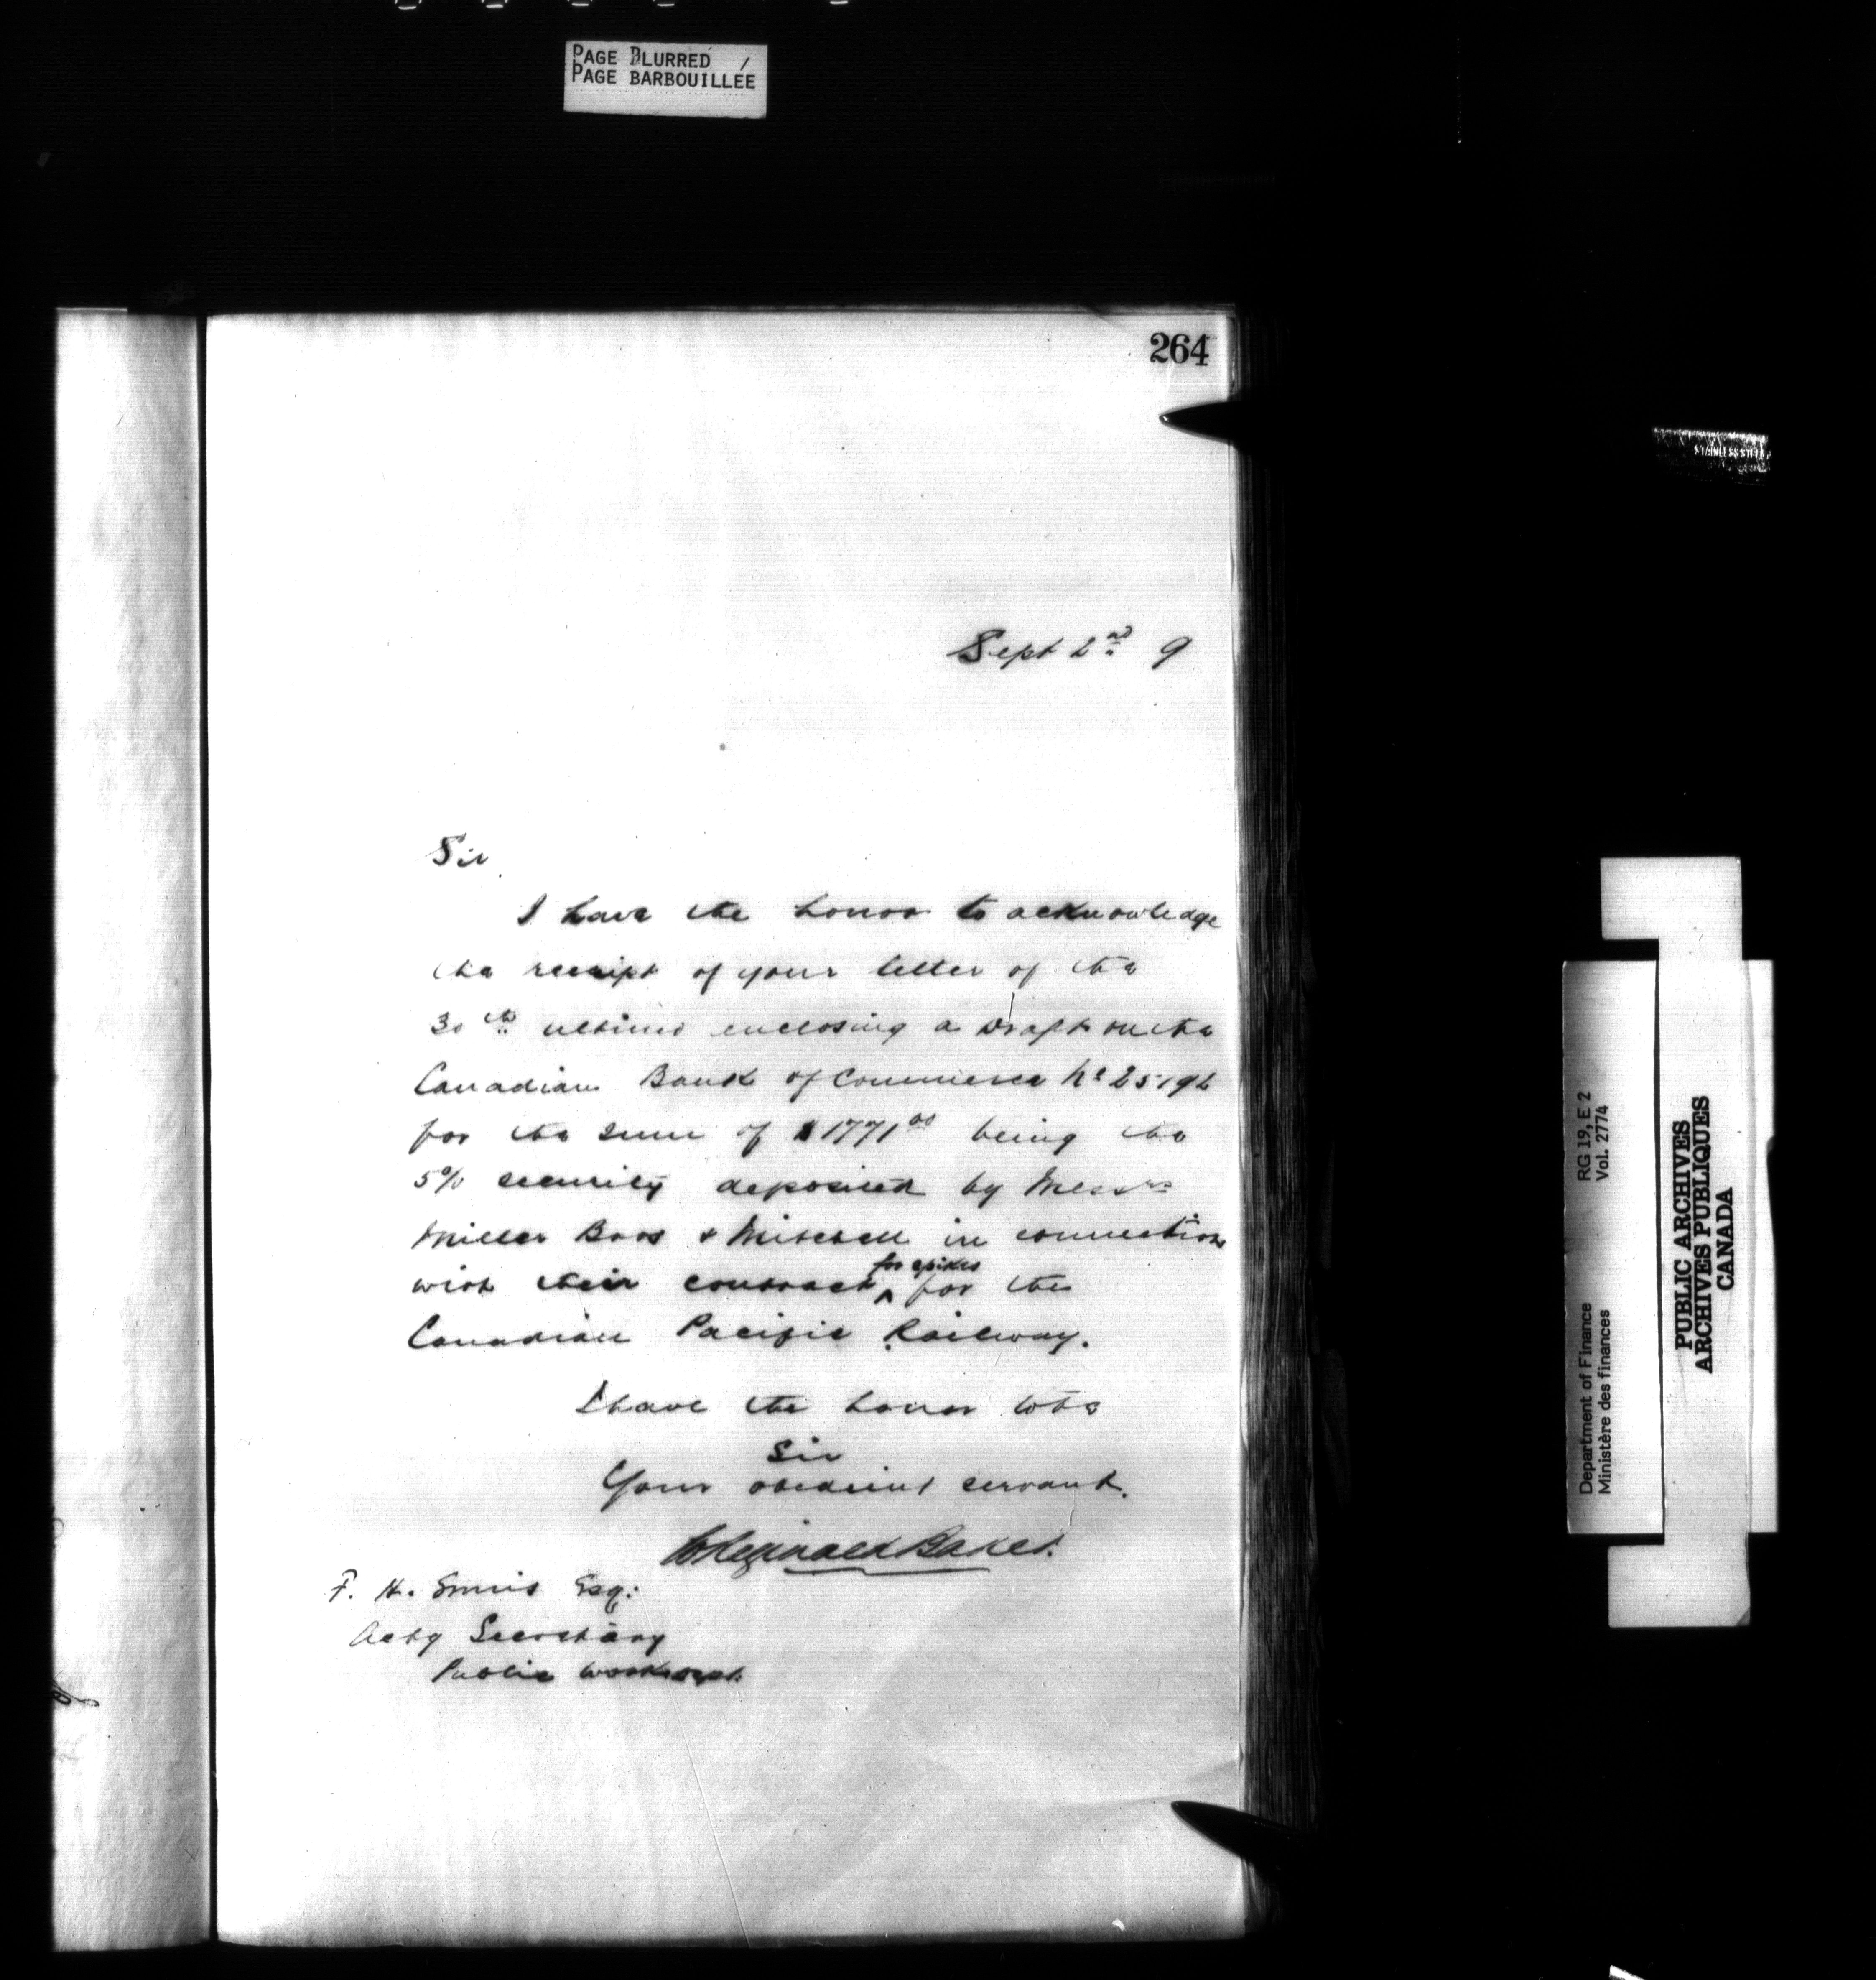 PAGE BLURRED /
PAGE BARBOUILLEE
264
Sept 2nd 9
Sir
I have the honor to acknowledge
the receipt of your letter of the
30th ultimo enclosing a Draft on the
Canadian Bank of Commerce No 25192
for the sum of $1771.00 being the
5% security deposited by Messrs
Miller Bros & Mitchell in connection
for spikes
with their contract ^ for the
Canadian Pacific Railway.
I have the honor to be
Sir
Your obedient servant.
Reginald Baker.
F. H. Ennis Esq:
Actg Secretary
Public Works Dept.
STAINLESS STEEL
RG 19, E 2
Vol. 2774
Department of Finance
Ministère des finances
PUBLIC ARCHIVES
ARCHIVES PUBLIQUES
CANADA